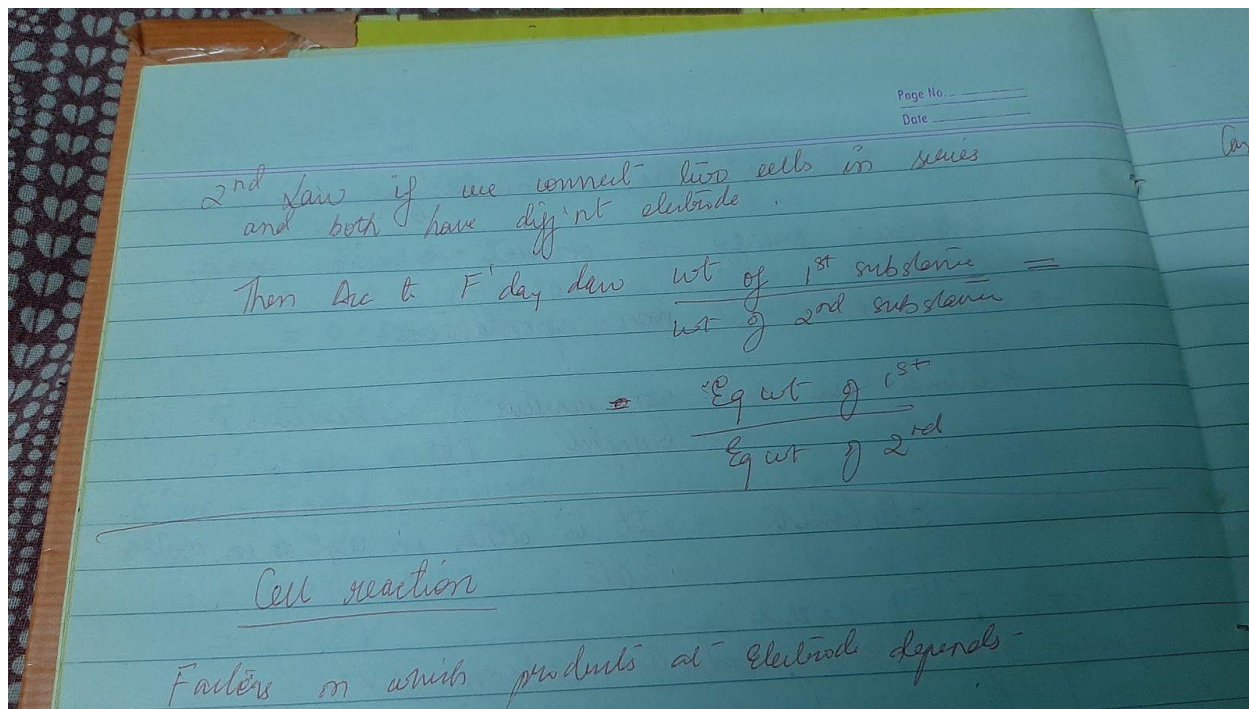 Page No.
Date
2nd Law if we connect two cells in series
and both have diff'nt electrode.
Then Acc to F'day Law wt of 1st substance =
wt of 2nd substance
Eq wt of 1st
Eq wt of 2nd
Cell reaction
Factors on which products at Electrode depends